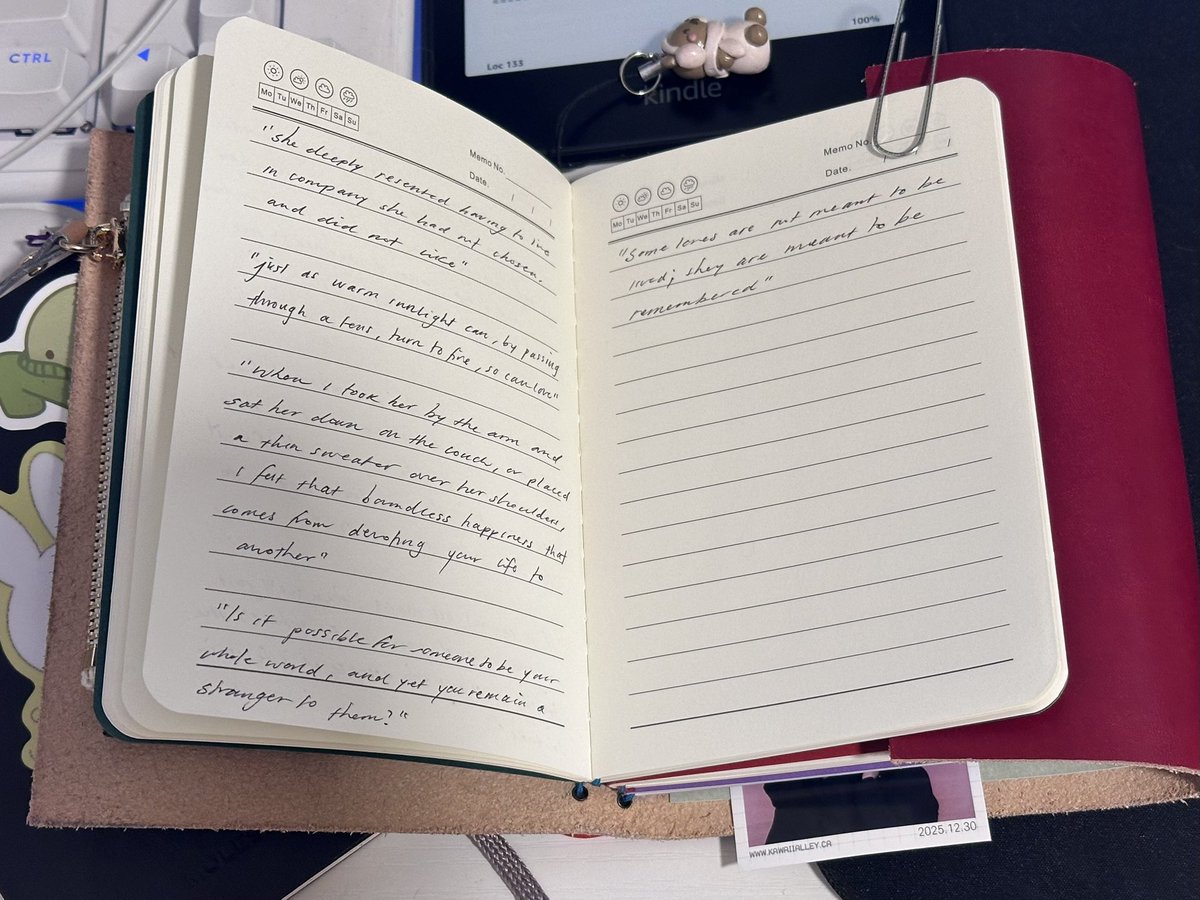 CTRL
Loc 133
100%
kindle
Mo Tu We Th Fr Sa Su
Memo No.
Date.
"she deeply resented having to live
in company she had not chosen.
and did not like"
"just as warm sunlight can, by passing
through a lens, turn to fire, so can love"
"When I took her by the arm and
sat her down on the couch, or placed
a thin sweater over her shoulders,
I felt that boundless happiness that
comes from devoting your life to
another"
"Is it possible for someone to be your
whole world, and yet you remain a
stranger to them?"
Memo No.
Date.
Mo Tu We Th Fr Sa Su
"Some loves are not meant to be
lived; they are meant to be
remembered"
2025.12.30
WWW.KAWAIIALLEY.CA